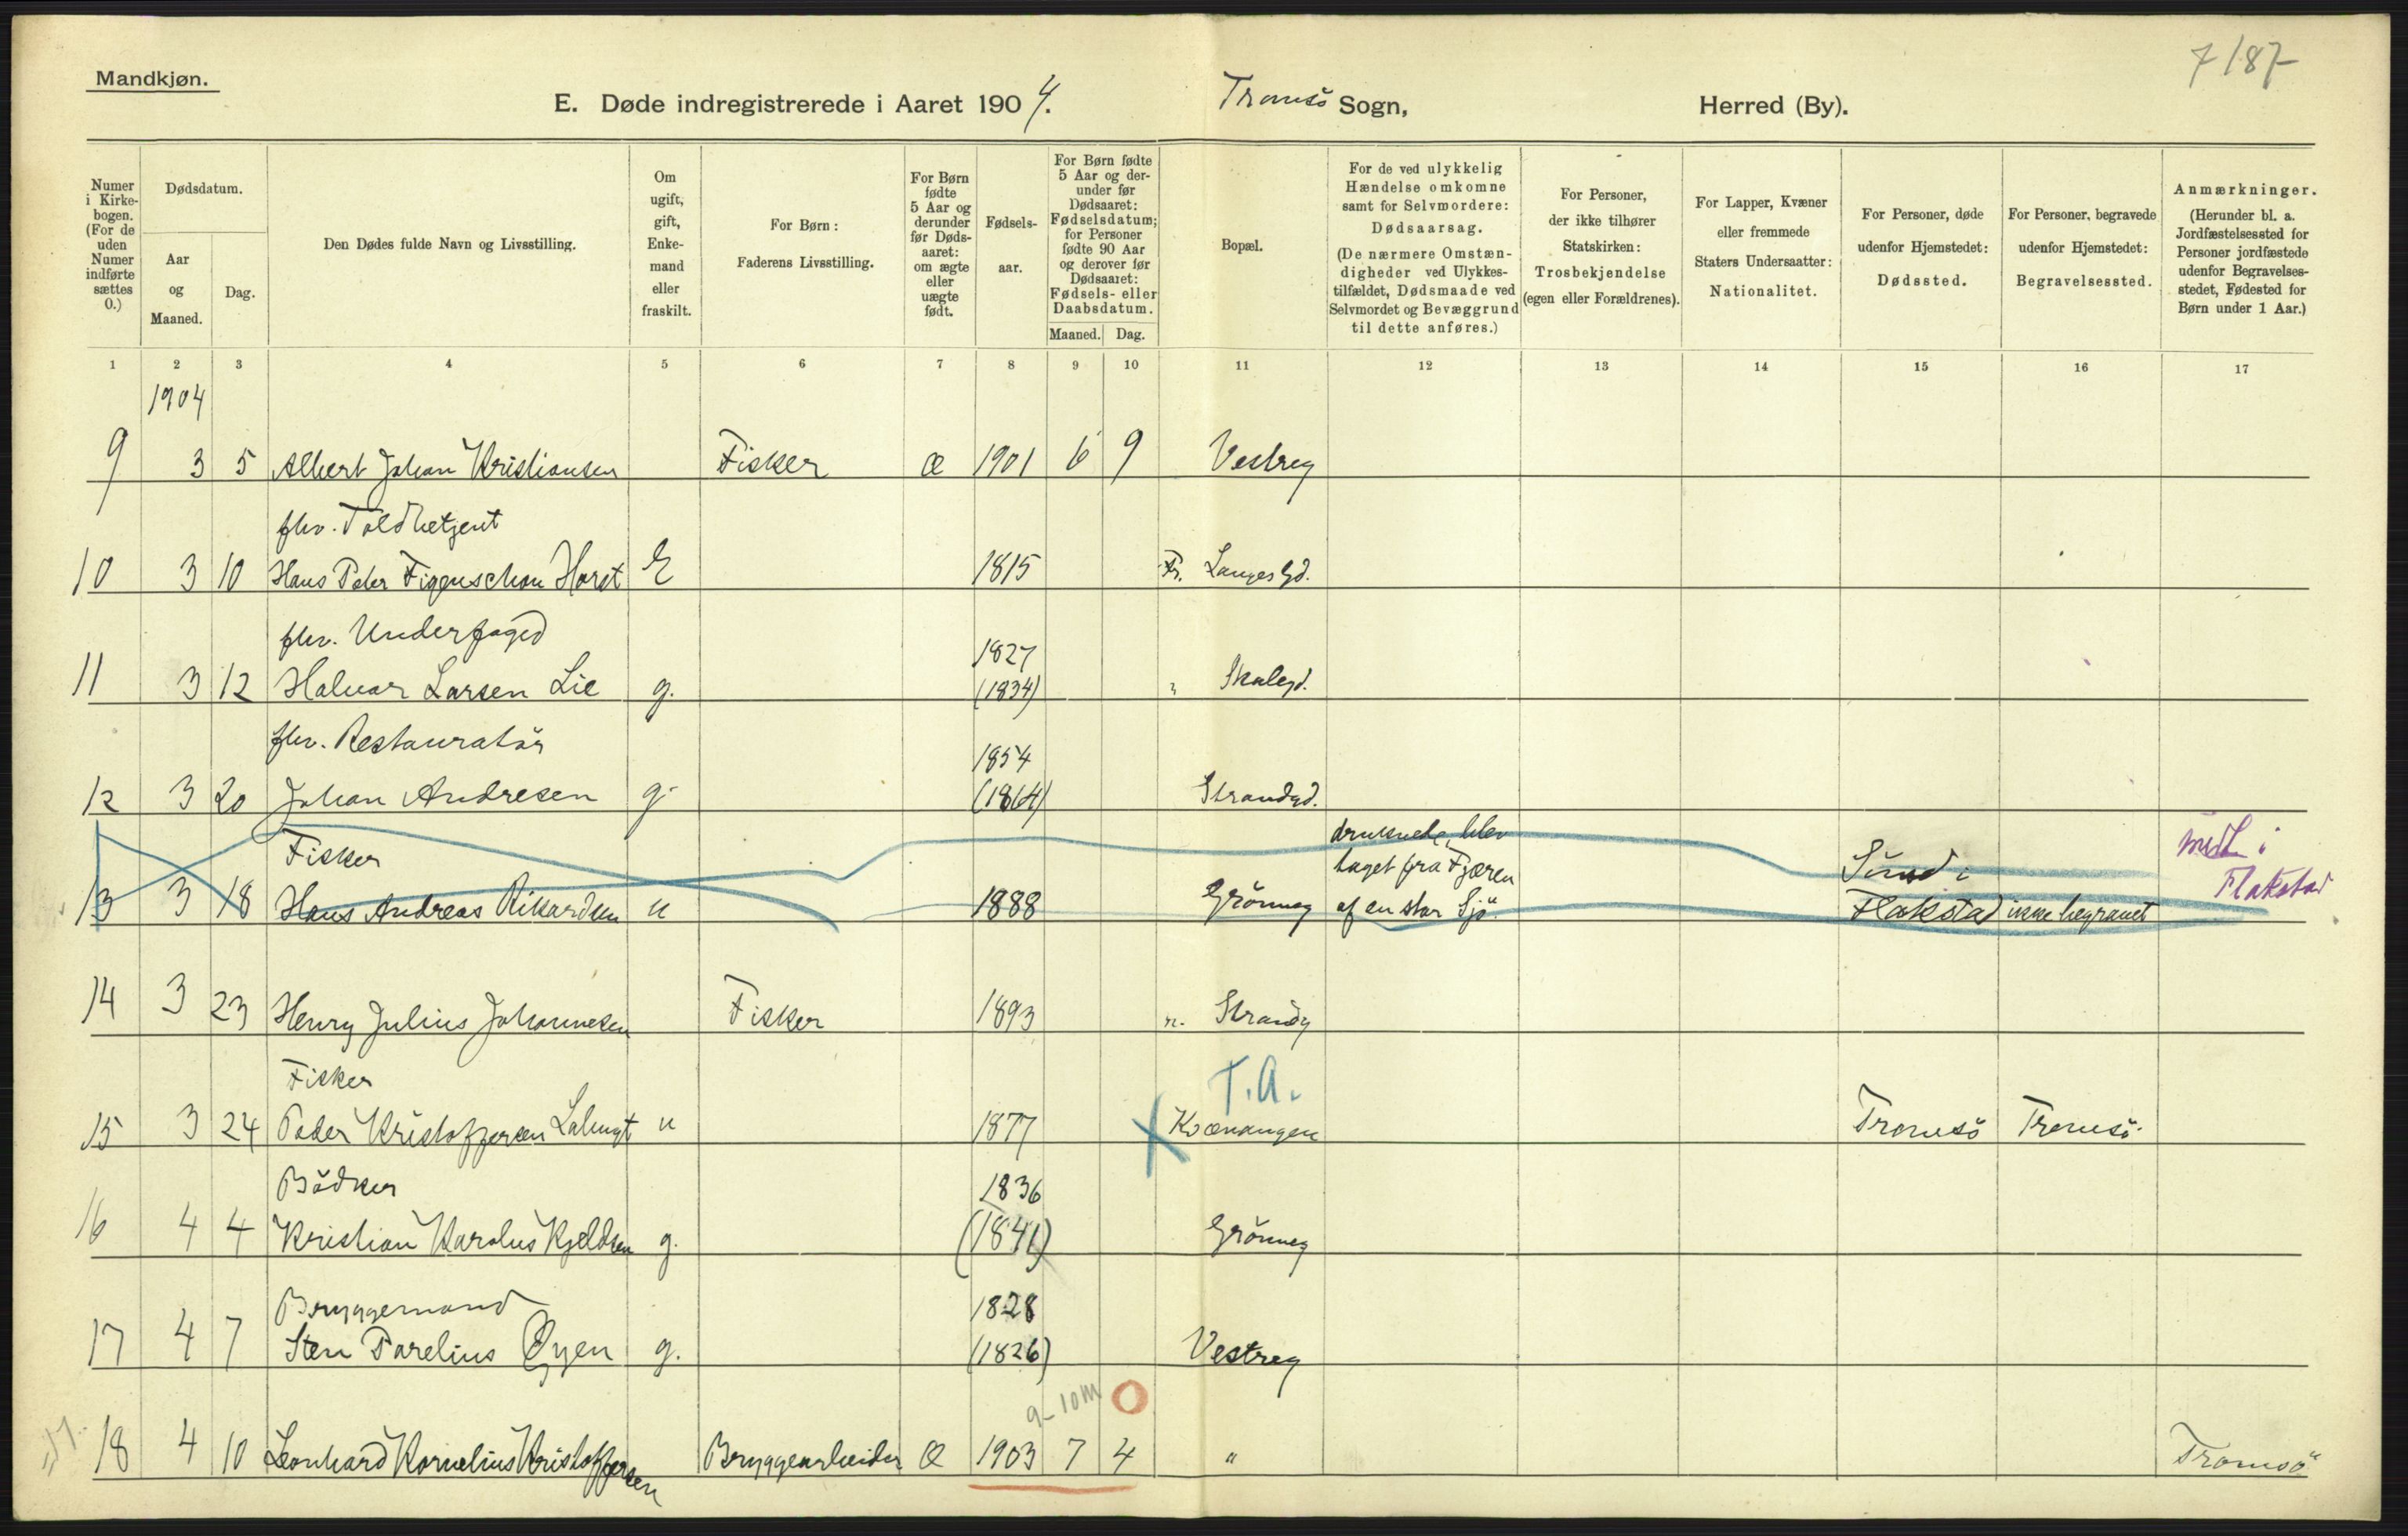 7187
Mandkjøn.
E. Døde indregistrerede i Aaret 1904.
Tromsö Sogn,
Herred (By).
Numer i Kirke-bogen. (For de uden Numer indførte sættes 0.)
Dødsdatum.
Aar og Maaned.
Dag.
Den Dødes fulde Navn og Livsstilling.
Om ugift, gift, Enke-mand eller fraskilt.
For Børn: Faderens Livsstilling.
For Børn fødte 5 Aar og derunder før Døds-aaret: om ægte eller uægte født.
Fødsels-aar.
For Børn fødte 5 Aar og der-under før Dødsaaret: Fødselsdatum; for Personer fødte 90 Aar og derover før Dødsaaret: Fødsels- eller Daabsdatum.
Maaned. Dag.
Bopæl.
For de ved ulykkelig Hændelse omkomne samt for Selvmordere: Dødsaarsag.
(De nærmere Omstæn-digheder ved Ulykkes-tilfældet, Dødsmaade ved Selvmordet og Bevæggrund til dette anføres.)
For Personer, der ikke tilhører Statskirken: Trosbekjendelse (egen eller Forældrenes).
For Lapper, Kvæner eller fremmede Staters Undersaatter: Nationalitet.
For Personer, døde udenfor Hjemstedet: Dødssted.
For Personer, begravede udenfor Hjemstedet: Begravelsessted.
Anmærkninger. (Herunder bl. a. Jordfæstelsessted for Personer jordfæstede udenfor Begravelses-stedet, Fødested for Børn under 1 Aar.)
1 2 3 4 5 6 7 8 9 10 11 12 13 14 15 16 17
1904
9 3 5 Albert Johan Kristiansen Fisker Æ 1901 6 9 Vestreg
fhv. Toldbetjent
10 3 10 Hans Peder Figenschou Horst E 1815 Fr. Langesgd.
fhv. Underfoged
1827
11 3 12 Halvar Larsen Lie g. (1834) " Skolegd.
fhv. Restauratör
1854
12 3 20 Johan Andresen g. (1864) Strandgd.
Fisker druknede, blev taget fra Fjæren Sund i medt i
13 3 18 Hans Andreas Rikardsen u 1888 Grönneg af en stor Sjö Flakstad ikke begravet Flakstad
14 3 23 Henry Julius Johannesen Fisker 1893 n. Strandg
Fisker T.A.
15 3 24 Peder Kristoffersen u 1877 Kvænangen Tromsö Tromsö
Bödker 1836
16 4 4 Kristian Karolus Kjeldsen g. (1841) Grönneg
Bryggemand 1828
17 4 7 Sten Parelius Öyen g. (1826) Vestreg
9-10 M
18 4 10 Leonhard Kornelius Kristoffersen Bryggearbeider Æ 1903 7 4 " Tromsö